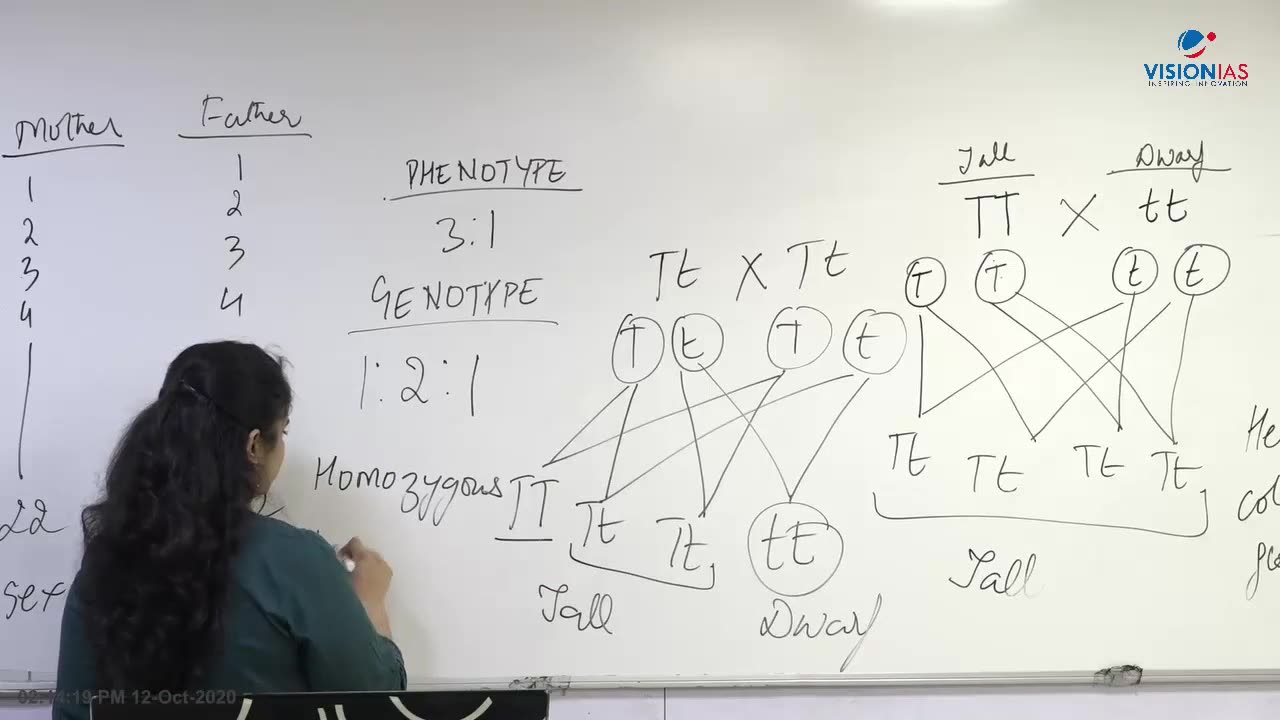 VISIONIAS
INSPIRING INNOVATION
Mother
1
2
3
4
22
Sex
Father
1
2
3
4
PHENOTYPE
3:1
GENOTYPE
1:2:1
Homozygous
Tt X Tt
T t T t
TT Tt Tt tt
Tall Dwarf
Tall Dwarf
TT X tt
T T t t
Tt Tt Tt Tt
Tall
He
col
02:14:19 PM 12-Oct-2020